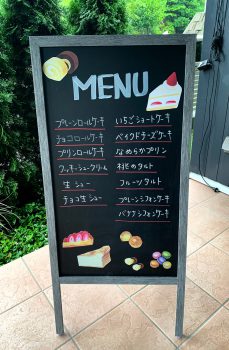 MENU
プレーンロールケーキ
チョコロールケーキ
プリンロールケーキ
クッキーシュークリーム
生シュー
チョコ生シュー
いちごショートケーキ
ベイクドチーズケーキ
なめらかプリン
桃のタルト
フルーツタルト
プレーンシフォンケーキ
バナナシフォンケーキ